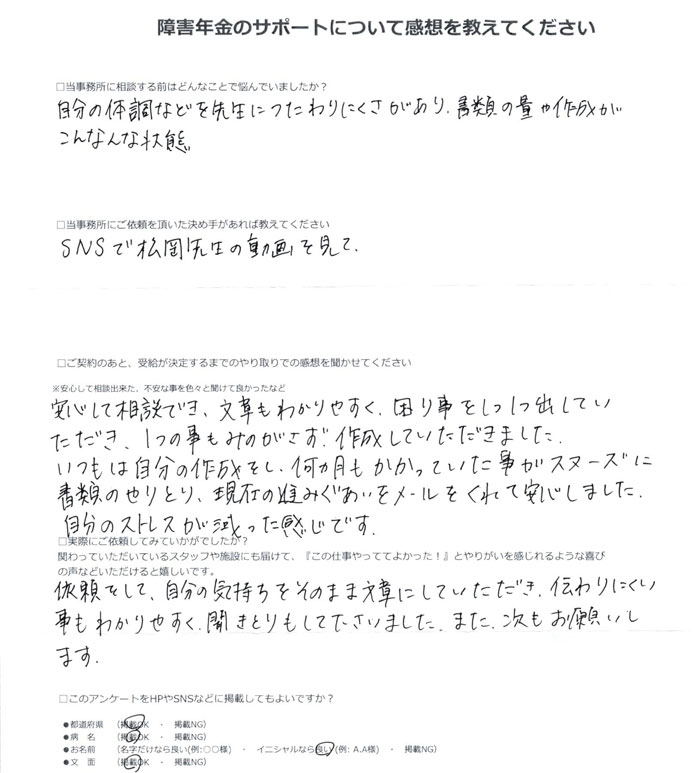 障害年金のサポートについて感想を教えてください
□当事務所に相談する前はどんなことで悩んでいましたか？
自分の体調などを先生につたわりにくさがあり、書類の量や作成が
こんなんな状態
□当事務所にご依頼を頂いた決め手があれば教えてください
SNSで松岡先生の動画を見て、
□ご契約のあと、受給が決定するまでのやり取りでの感想を聞かせてください
※安心して相談出来た、不安な事を色々と聞けて良かったなど
安心して相談でき、文章もわかりやすく、困り事を1つ1つ出してい
ただき、1つの事もみのがさず、作成していただきました。
いつもは自分の作成をし、何カ月もかかっていた事がスヌーズに
書類のやりとり、現在の進みぐあいをメールをくれて安心しました。
自分のストレスが減った感じです。
□実際にご依頼してみていかがでしたか？
関わっていただいているスタッフや施設にも届けて、『この仕事やっててよかった！』とやりがいを感じれるような喜び
の声などいただけると嬉しいです。
依頼をして、自分の気持ちをそのまま文章にしていただき、伝わりにくい
事もわかりやすく、聞きとりもして下さいました。また、次もお願いし
ます。
□このアンケートをHPやSNSなどに掲載してもよいですか？
●都道府県 （掲載OK ・ 掲載NG）
●病 名 （掲載OK ・ 掲載NG）
●お名前 （名字だけなら良い(例:○○様) ・ イニシャルなら良い (例: A.A様) ・ 掲載NG）
●文 面 （掲載OK ・ 掲載NG）